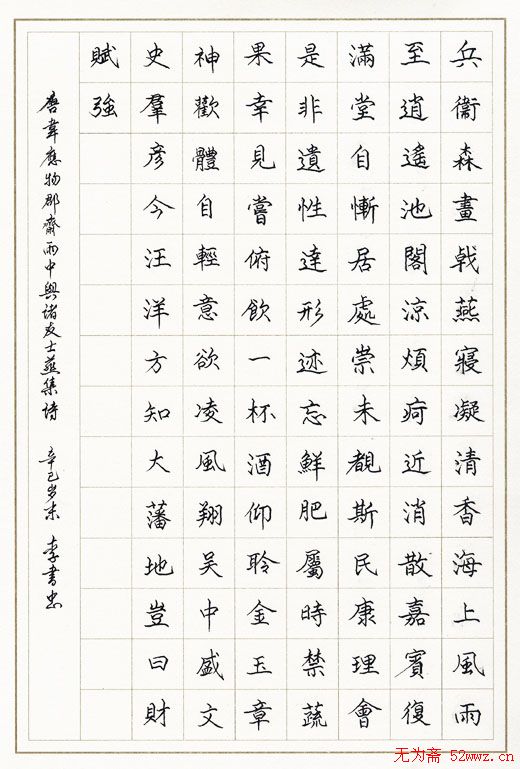 兵衞森畫戟燕寢凝清香海上風雨
至逍遙池閣涼煩疴近消散嘉賓復
滿堂自慚居處崇未覩斯民康理會
是非遺性達形迹忘鮮肥屬時禁蔬
果幸見嘗俯飲一杯酒仰聆金玉章
神歡體自輕意欲凌風翔吴中盛文
史羣彥今汪洋方知大藩地豈曰財
賦強
唐韋應物郡齋雨中與诸友士燕集诗 辛巳岁末 李書忠
无为斋 52wwz.cn